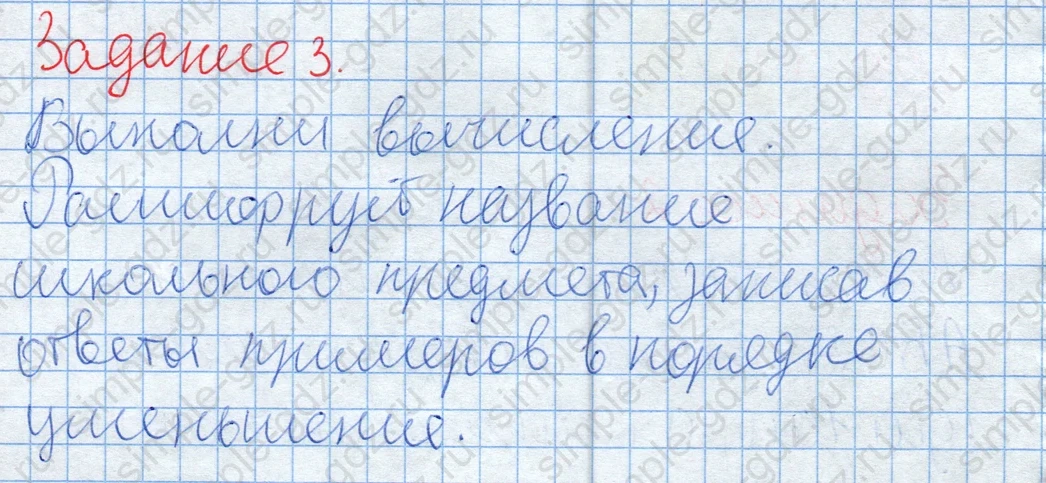 Задание 3.
Выполни вычисление.
Расшифруй название
школьного предмета, записав
ответы примеров в порядке
уменьшение.
simple-gdz.ru